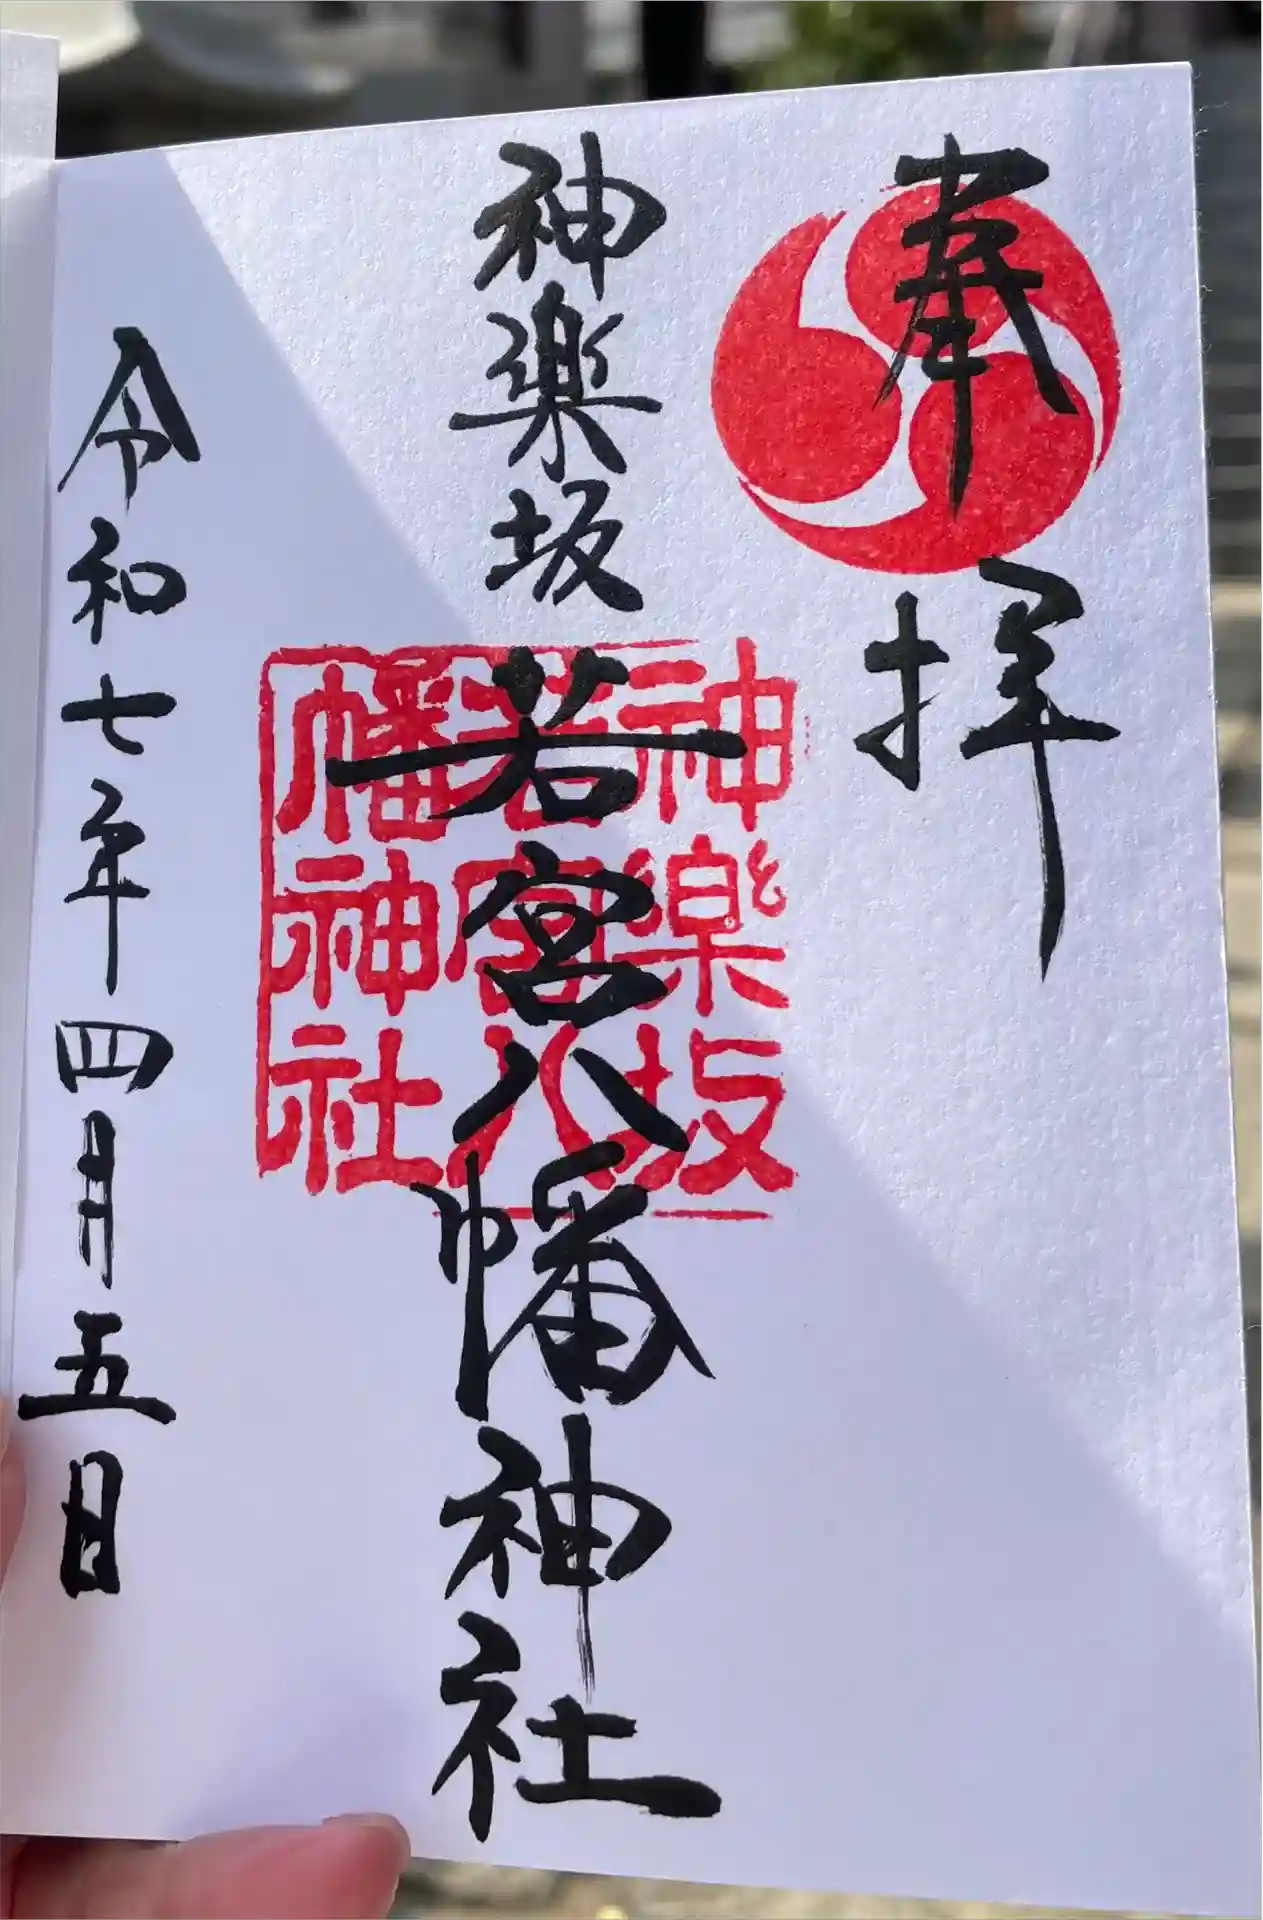 奉拝
神楽坂若宮八幡神社
神楽坂
若宮八
幡神社
令和七年四月五日